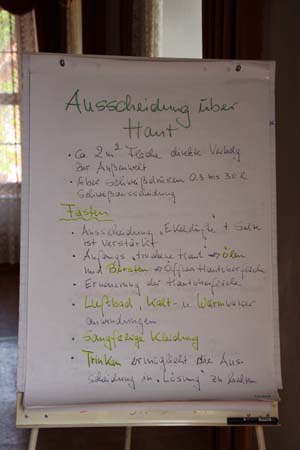 Ausscheidung über
Haut
• Ca. 2 m² Fläche direkte Verbdg
zur Außenwelt
• Über Schweißdrüsen 0,3 bis
Schweißausscheidung
Fasten
• Ausscheidung "
ist verstärkt
• Anfangs "trockene Haut → ölen
und Bürsten → öffnen Hautoberfläche
• Erneuerung der Hautoberfläche
• Luftbad, Kalt- u Warmwasser
anwendungen
• saugfähige Kleidung
• Trinken ermöglicht die Aus-
scheidung in "Lösung" zu halten